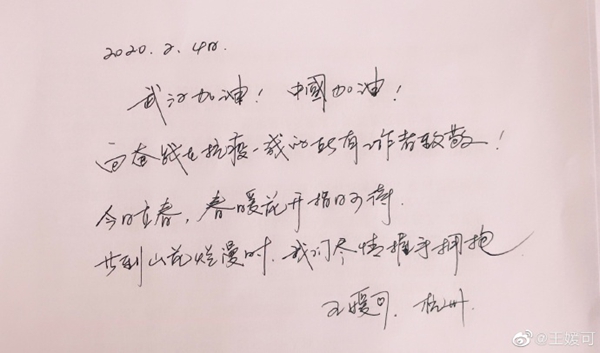 2020.2.4日.
武汉加油！中國加油！
向奋战在抗疫一线的所有工作者致敬！
今日立春，春暖花开指日可待.
步到山花烂漫时.我们尽情握手拥抱
王媛可.杭州.
@王媛可